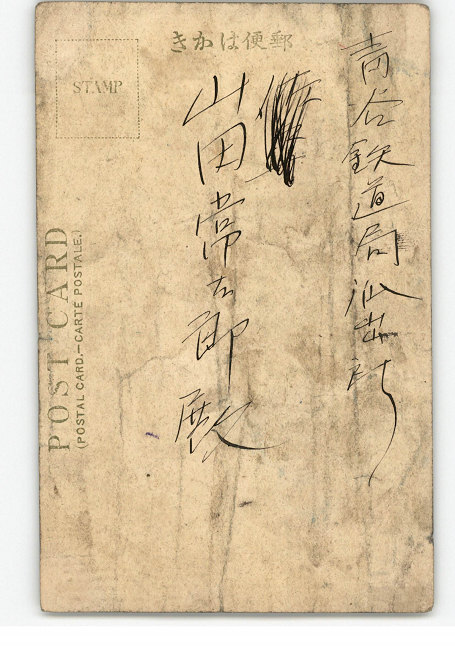 きかは便郵
STAMP
青谷鉄道局派出所
山田常太郎殿
POST CARD
(POSTAL CARD.—CARTE POSTALE.)